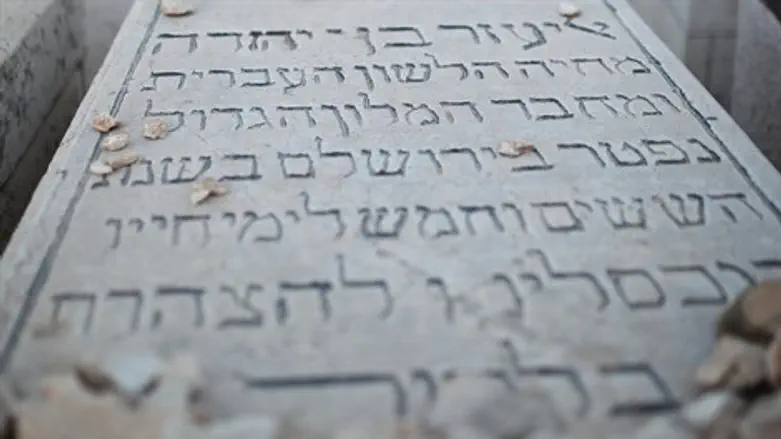 אליעזר בן-יהודה
מחיה הלשון העברית
ומחבר המלון הגדול
נפטר בירושלם בשנת
הששים וחמש לימי חייו
להצהרת